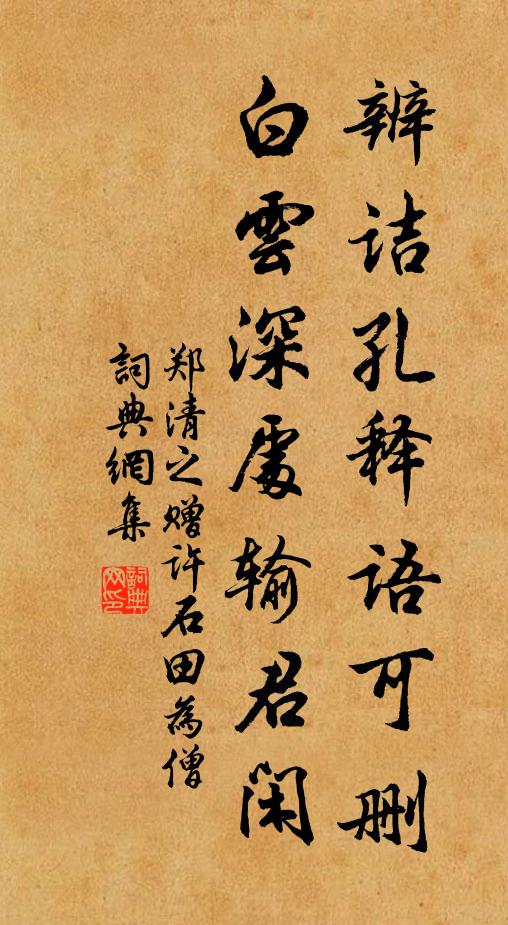 辨诘孔释语可删
白雲深處输君闲
郑清之赠许石田為僧
詞典網集
詞典网印